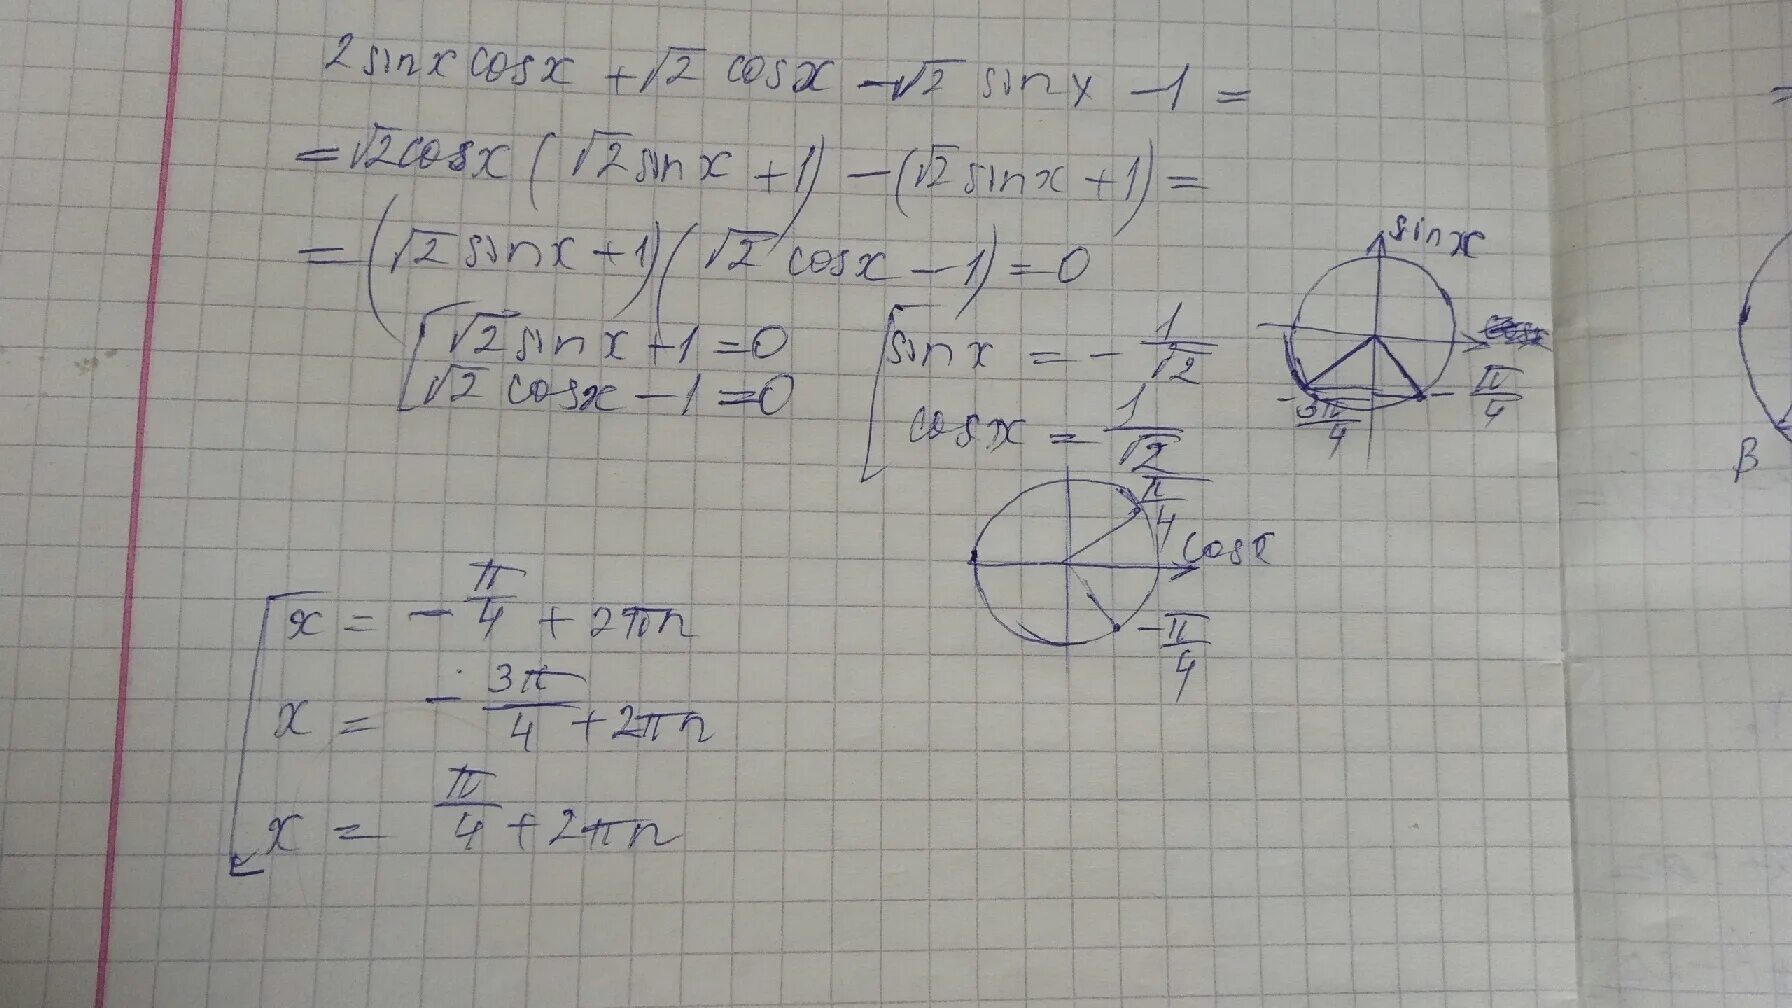 2sinxcosx + √2 cosx - √2 sinx - 1 =
= √2cosx (√2sinx + 1) - (√2sinx + 1) =
= (√2 sinx + 1)(√2 cosx - 1) = 0
√2 sinx + 1 = 0
√2 cosx - 1 = 0
sinx = - 1/√2
cosx = 1/√2
sinx
- 3π/4
- π/4
π/4
cosx
- π/4
x = - π/4 + 2πn
x = - 3π/4 + 2πn
x = π/4 + 2πn
=
β